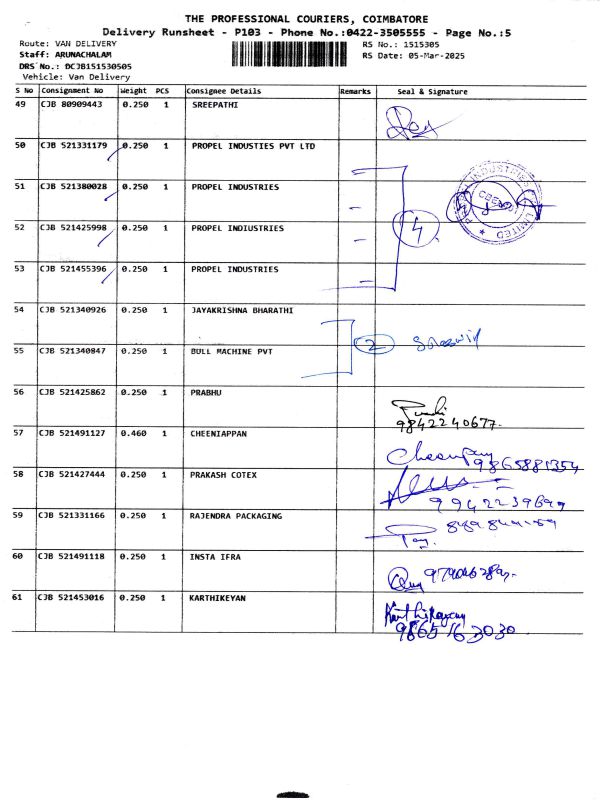 THE PROFESSIONAL COURIERS, COIMBATORE
Delivery Runsheet - P103 - Phone No.:0422-3505555 - Page No.:5
Route: VAN DELIVERY RS No.: 1515305
Staff: ARUNACHALAM RS Date: 05-Mar-2025
DRS No.: DCJB151530505
Vehicle: Van Delivery
S No Consignment No Weight PCS Consignee Details Remarks Seal & Signature
49 CJB 80909443 0.250 1 SREEPATHI
50 CJB 521331179 0.250 1 PROPEL INDUSTIES PVT LTD
51 CJB 521380028 0.250 1 PROPEL INDUSTRIES
52 CJB 521425998 0.250 1 PROPEL INDIUSTRIES
4
53 CJB 521455396 0.250 1 PROPEL INDUSTRIES
54 CJB 521340926 0.250 1 JAYAKRISHNA BHARATHI
2
55 CJB 521340847 0.250 1 BULL MACHINE PVT
56 CJB 521425862 0.250 1 PRABHU
9842240677
57 CJB 521491127 0.460 1 CHEENIAPPAN
9865881354
58 CJB 521427444 0.250 1 PRAKASH COTEX
59 CJB 521331166 0.250 1 RAJENDRA PACKAGING
60 CJB 521491118 0.250 1 INSTA IFRA
61 CJB 521453016 0.250 1 KARTHIKEYAN
Karthikeyan
9865163030